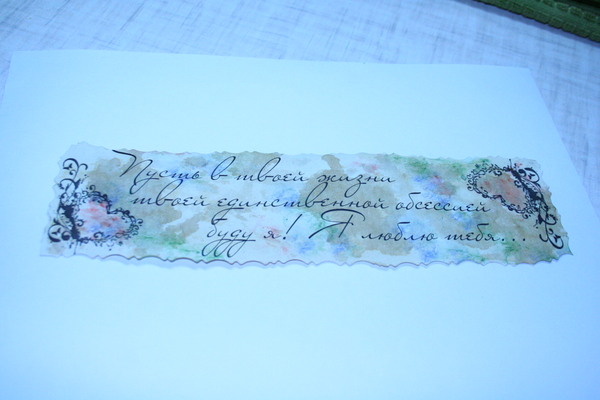 Пусть в твоей жизни
твоей единственной обсессией
буду я! Я люблю тебя...